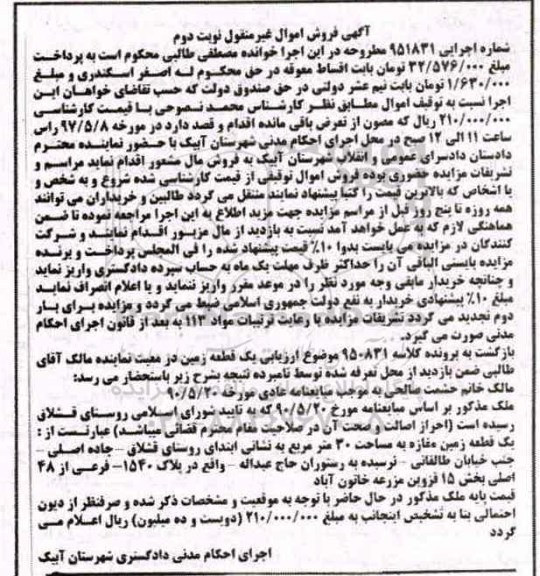 آگهی فروش اموال غیرمنقول نوبت دوم
شماره اجرایی ۹۵۱۸۳۱ مطروحه در این اجرا خوانده مصطفی طالبی محکوم است به پرداخت
مبلغ ۳۲/۵۷۶/۰۰۰ تومان بابت اقساط معوقه در حق محکوم له اصغر اسکندری و مبلغ
۱/۶۳۰/۰۰۰ تومان بابت نیم عشر دولتی در حق صندوق دولت که حسب تقاضای خواهان این
اجرا نسبت به توقیف اموال مطابق نظر کارشناس محمد نصوحی با قیمت کارشناسی
۲۱۰/۰۰۰/۰۰۰ ریال که مصون از تعرض باقی مانده اقدام و قصد دارد در مورخه ۹۷/۵/۸ راس
ساعت ۱۱ الی ۱۲ صبح در محل اجرای احکام مدنی شهرستان آبیک با حضور نماینده محترم
دادستان دادسرای عمومی و انقلاب شهرستان آبیک به فروش مال مشعور اقدام نماید مراسم و
تشریفات مزایده حضوری بوده فروش اموال توقیفی از قیمت کارشناسی شده شروع و به شخص و
یا اشخاص که بالاترین قیمت را کتبا پیشنهاد نمایند منتقل می گردد طالبین و خریداران می توانند
همه روزه تا پنج روز قبل از مراسم مزایده جهت مزید اطلاع به این اجرا مراجعه نموده تا ضمن
هماهنگی لازم که به عمل خواهد آمد نسبت به بازدید از مال مزبور اقدام نمایند و شرکت
کنندگان در مزایده می بایست بدوا ۱۰٪ قیمت پیشنهاد شده را فی المجلس پرداخت و برنده
مزایده بایستی الباقی آن را حداکثر ظرف مهلت یک ماه به حساب سپرده دادگستری واریز نماید
و چنانچه خریدار مابقی وجه مورد نظر را در موعد مقرر واریز ننماید و یا اعلام انصراف نماید
مبلغ ۱۰٪ پیشنهادی خریدار به نفع دولت جمهوری اسلامی ضبط می گردد و مزایده برای بار
دوم تجدید می گردد تشریفات مزایده با رعایت ترتیبات مواد ۱۱۳ به بعد از قانون اجرای احکام
مدنی صورت می گیرد.
بازگشت به پرونده کلاسه ۹۵۰۸۳۱ موضوع ارزیابی یک قطعه زمین در معیت نماینده مالک آقای
طالبی ضمن بازدید از محل تعرفه شده توسط نامبرده نتیجه بشرح زیر باستحضار می رسد:
مالک خانم حشمت صالحی به موجب مبایعنامه عادی مورخه ۹۰/۵/۲۰
ملک مذکور بر اساس مبایعنامه مورخ ۹۰/۵/۲۰ که به تایید شورای اسلامی روستای قشلاق
رسیده است (احراز اصالت و صحت آن در صلاحیت مقام محترم قضائی میباشد) عبارتست از :
یک قطعه زمین مغازه به مساحت ۳۰ متر مربع به نشانی ابتدای روستای قشلاق – جاده اصلی –
جنب خیابان طالقانی – نرسیده به رستوران حاج عبداله – واقع در پلاک ۱۵۴۰– فرعی از ۴۸
اصلی بخش ۱۵ قزوین مزرعه خاتون آباد
قیمت پایه ملک مذکور در حال حاضر با توجه به موقعیت و مشخصات ذکر شده و صرفنظر از دیون
احتمالی بنا به تشخیص اینجانب به مبلغ ۲۱۰/۰۰۰/۰۰۰ (دویست و ده میلیون) ریال اعلام می
گردد
اجرای احکام مدنی دادگستری شهرستان آبیک